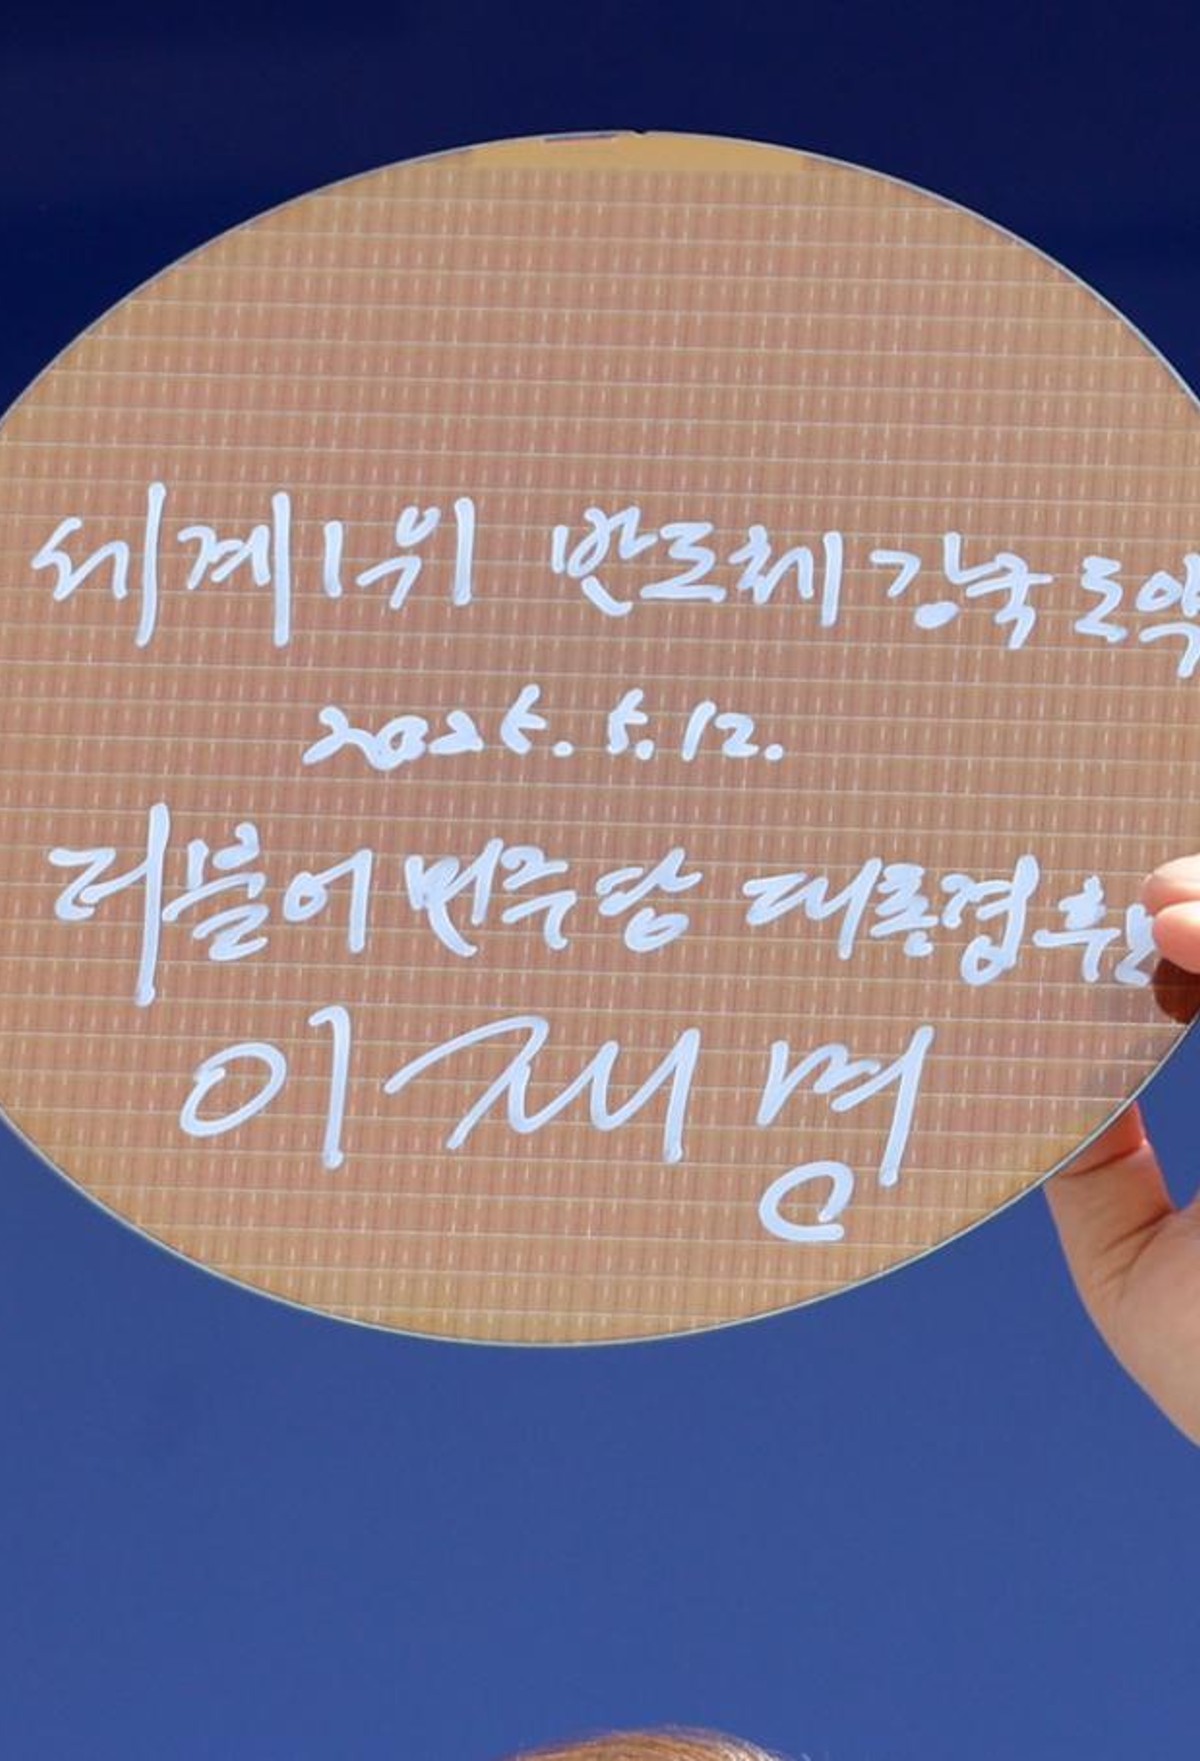 세계1위 반도체 강국 도약
2025. 5. 12.
더불어민주당 대통령 후보
이재명